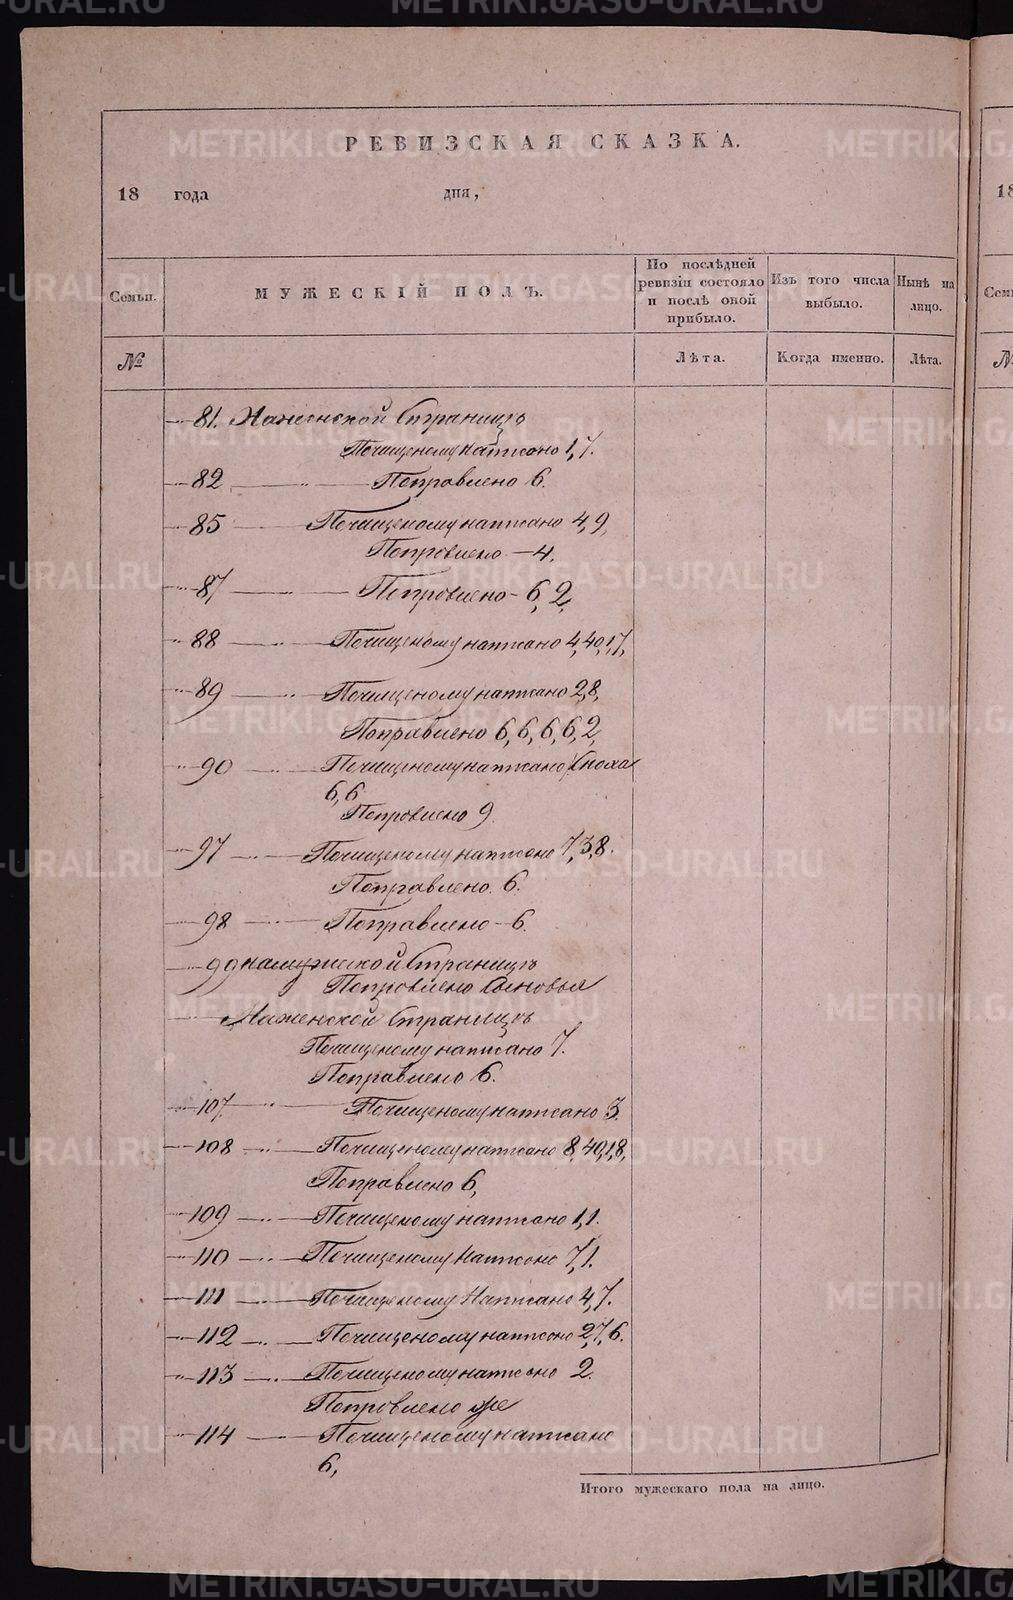 РЕВИЗСКАЯ СКАЗКА.
18 года дня,
Семьи. МУЖЕСКІЙ ПОЛЪ. По послѣдней ревизіи состояло и послѣ оной прибыло. Изъ того числа выбыло. Нынѣ на лицо.
№ Лѣта. Когда именно. Лѣта.
81. Наженской Страницѣ
Почищеному написано 1, 7.
82 Поправлено 6.
85 Почищеному написано 4, 9,
Поправлено — 4.
87 Поправлено — 6, 2,
88 Почищеному написано 4, 40, 17,
89 Почищеному написано 2, 8,
Поправлено 6, 6, 6, 6, 2,
90 Почищеному написано Сноха
6, 6
Поправлено 9
97 Почищеному написано 7, 3, 8.
Поправлено 6.
98 Поправлено — 6.
99 намужеской Страницѣ
Поправлено Сыновья
Наженской Страницѣ
Почищеному написано 7.
Поправлено 6.
107. Почищеному написано 3.
108 Почищеному написано 8, 40, 18,
Поправлено 6,
109 Почищеному написано 1, 1.
110 Почищеному Написано 7, 1.
111 Почищеному Написано 4, 7.
112 Почищеному написано 2, 7, 6.
113 Почищеному написано 2.
Поправлено же
114 Почищеному написано
6,
Итого мужескаго пола на лицо.
METRIKI.GASO-URAL.RU